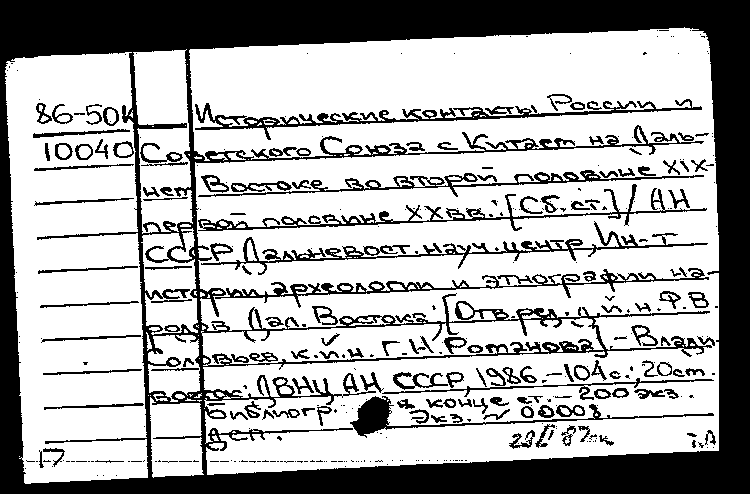 86-50к Исторические контакты России и
10040 Советского Союза с Китаем на Даль-
нем Востоке во второй половине XIX-
первой половине XX вв.: [Сб. ст.] / АН
СССР, Дальневост. науч. центр, Ин-т
истории, археологии и этнографии на-
родов Дал. Востока; [Отв. ред. д. и. н. Ф.В.
Соловьев, к.и.н. Г.Н. Романова]. - Влади-
восток: ДВНЦ АН СССР, 1986. - 104 с.; 20 см.
Библиогр. в конце ст. - 200 экз.
Экз. № 00008.
Деп.
17